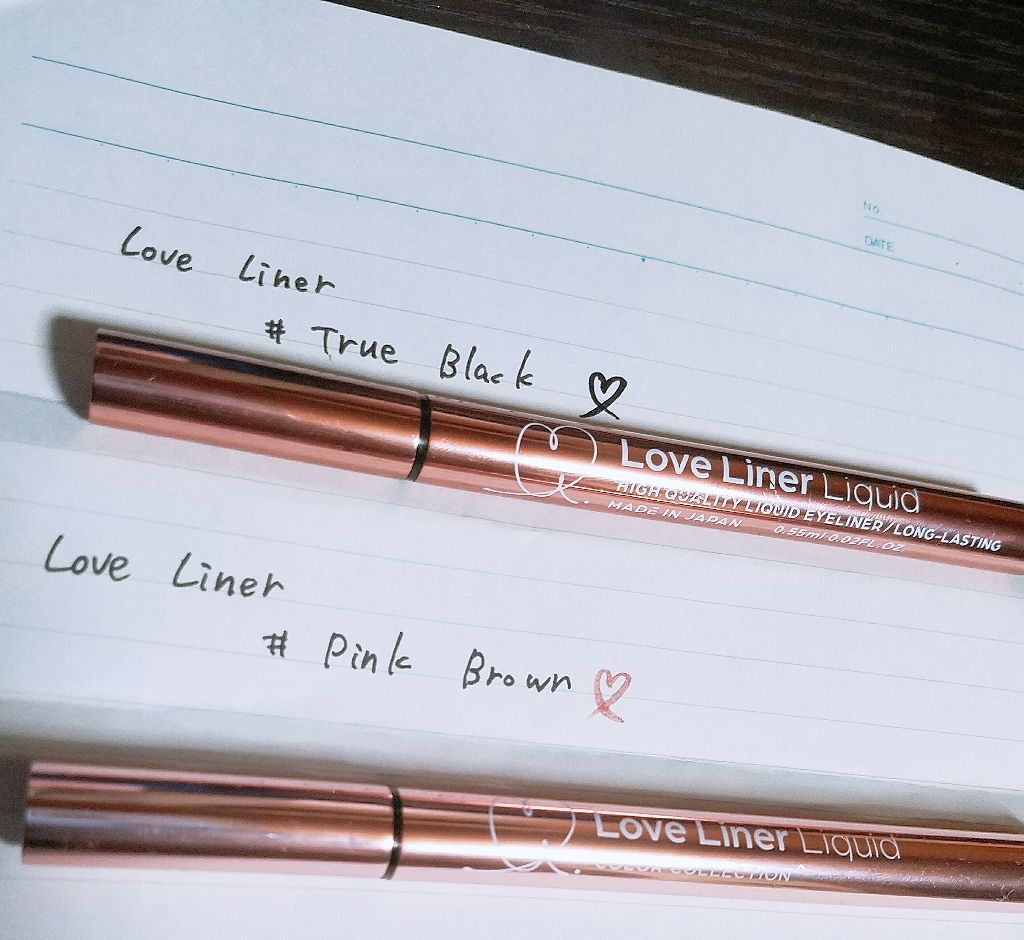 No.
DATE
Love Liner
# True Black
Love Liner Liquid
HIGH QUALITY LIQUID EYELINER/LONG-LASTING
MADE IN JAPAN 0.55ml 0.02FL.OZ.
Love Liner
# Pink Brown
Love Liner Liquid
COLOR COLLECTION